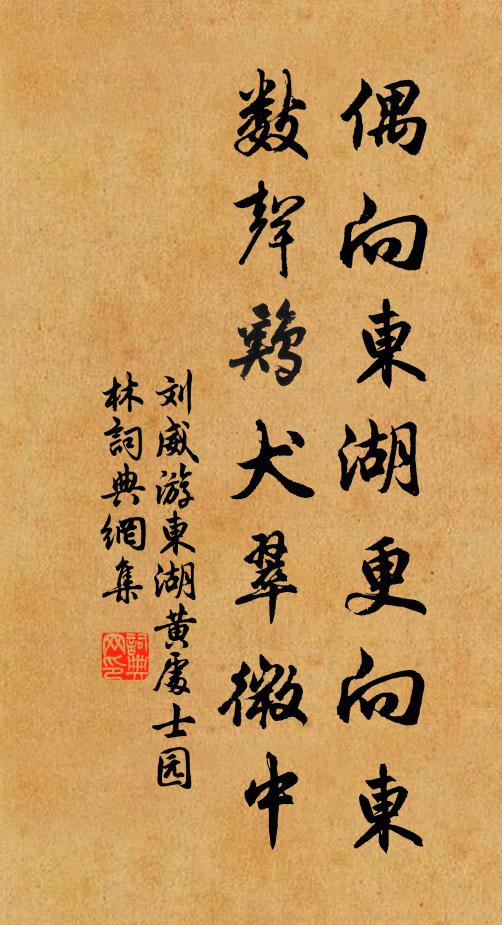 偶向東湖更向東
數聲鷄犬翠微中
刘威游東湖黄處士园
林詞典網集
詞典网印